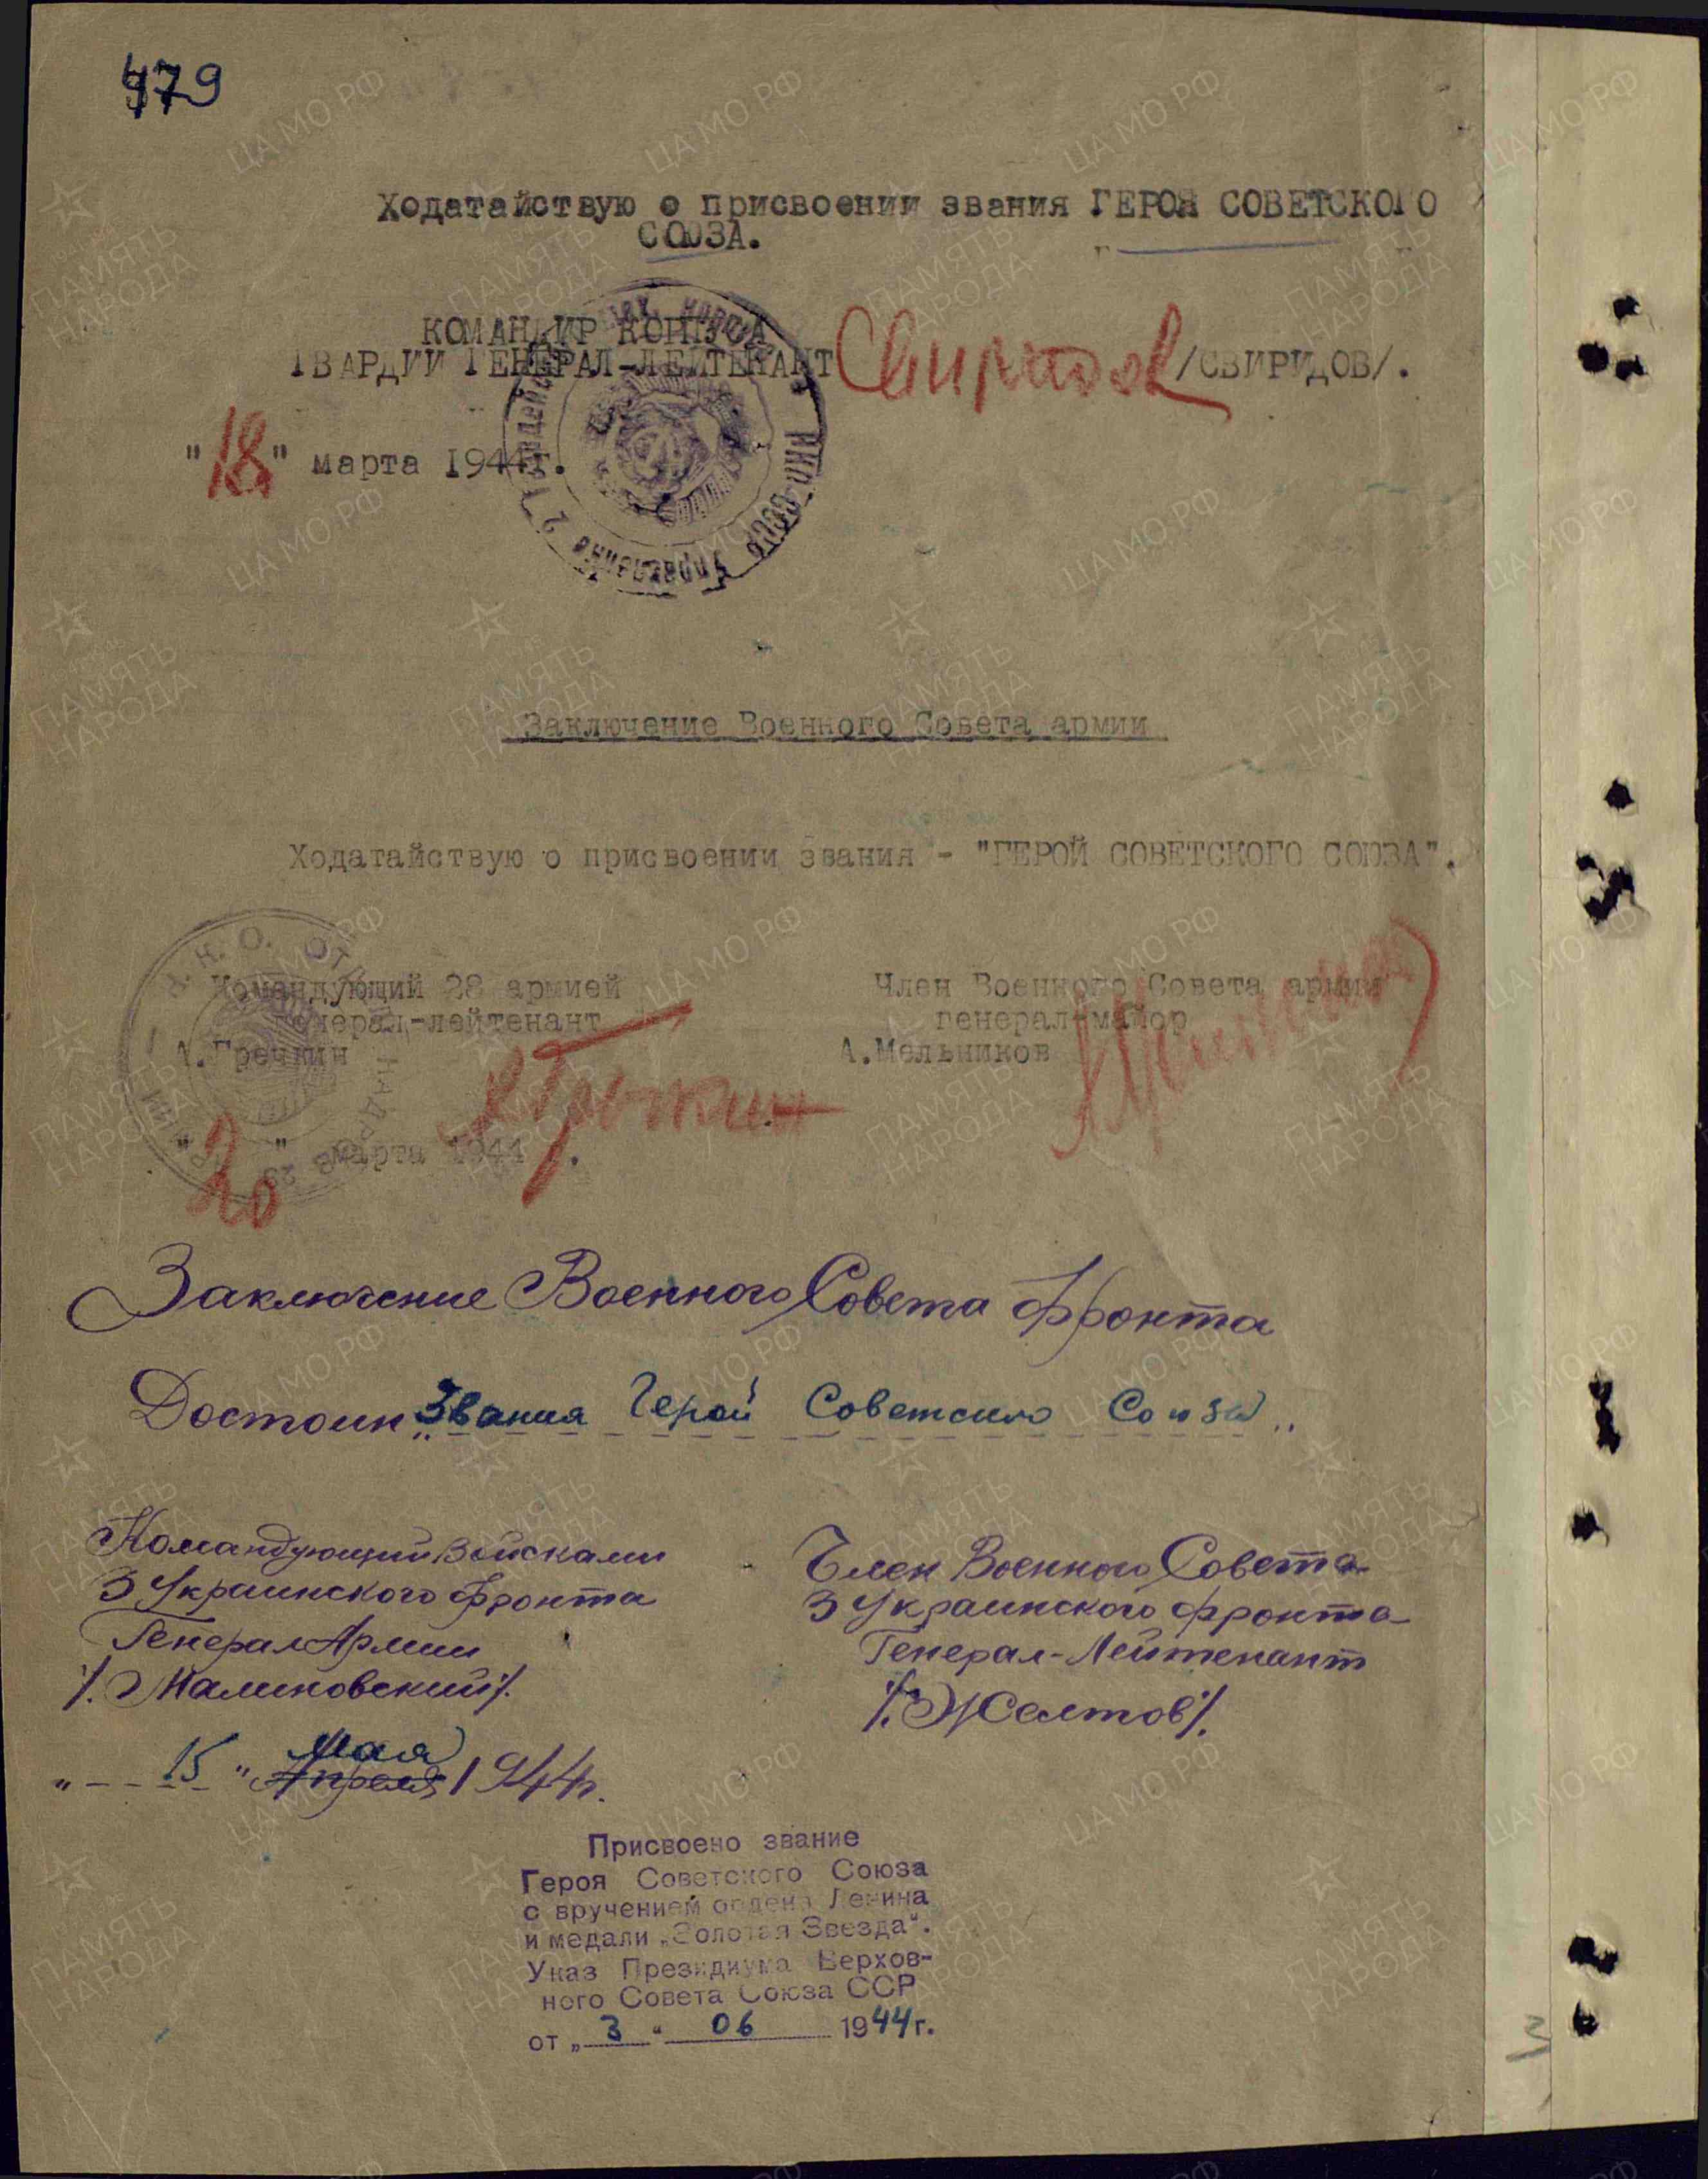 479
Ходатайствую о присвоении звания ГЕРОЯ СОВЕТСКОГО
СОЮЗА.
КОМАНДИР КОРПУСА
ГВАРДИИ ГЕНЕРАЛ-ЛЕЙТЕНАНТ Свиридов /СВИРИДОВ/.
"18" марта 1944г.
Заключение Военного Совета армии
Ходатайствую о присвоении звания - "ГЕРОЙ СОВЕТСКОГО СОЮЗА".
Командующий 28 армией
генерал-лейтенант
А.Гречкин
Член Военного Совета армии
генерал-майор
А.Мельников
"20" марта 1944 г.
Заключение Военного Совета Фронта
Достоин „звания Герой Советского Союза„
Командующий Войсками
3 Украинского Фронта
Генерал Армии
/. Малиновский/.
Член Военного Совета
3 Украинского Фронта
Генерал-Лейтенант
/. Желтов/.
мая
„ 15 " Апреля 1944г.
Присвоено звание
Героя Советского Союза
с вручением ордена Ленина
и медали „Золотая Звезда“.
Указ Президиума Верхов-
ного Совета Союза ССР
от „ 3 “ 06 1944г.
ЦА МО РФ
ПАМЯТЬ
НАРОДА